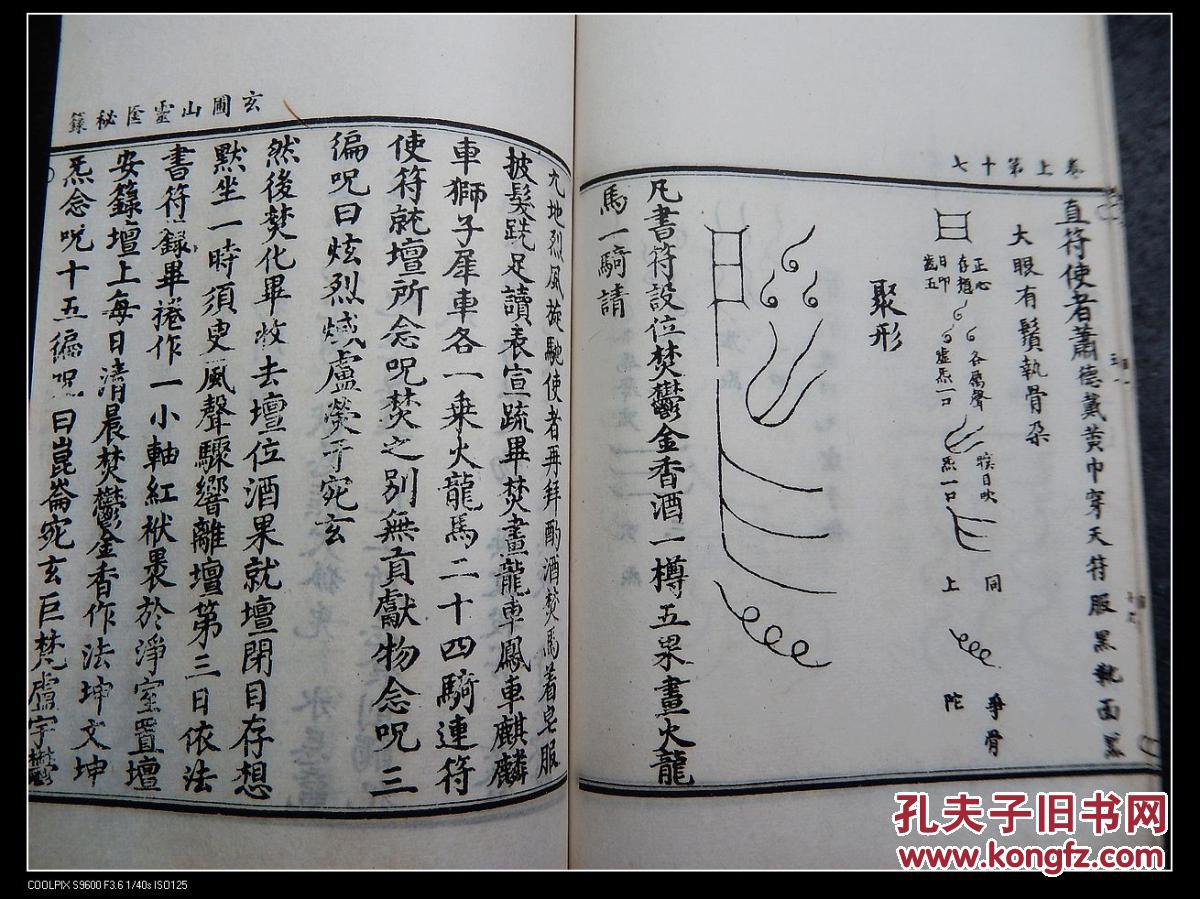 卷上第十七
直符使者蕭德戴黄巾穿天符服黑執面黑
大眼有鬚執骨朶
正心
存想
日印
齒五
各屬聲
噓炁一口
炁一口
同
上
爭骨
陀
聚形
凡書符設位焚鬱金香酒一樽五果畫火龍
馬一騎請
玄圃山靈𠪨秘籙
九地烈風旋馳使者再拜酌酒焚馬着皂服
披髮跣足讀表宣疏畢焚畫龍車鳳車麒麟
車獅子犀車各一乘火龍馬二十四騎連符
使符就壇所念呪焚之别無貢獻物念呪三
徧呪曰炫烈
然後焚化畢收去壇位酒果就壇閉目存想
默坐一時須臾風聲驟響離壇第三日依法
書符籙畢捲作一小軸紅袱裹於淨室置壇
安籙壇上每日清晨焚鬱金香作法坤文坤
炁念呪十五徧呪曰崑崙宛玄巨梵盧宇
孔夫子旧书网
www.kongfz.com
COOLPIX S9600 F3.6 1/40s ISO125